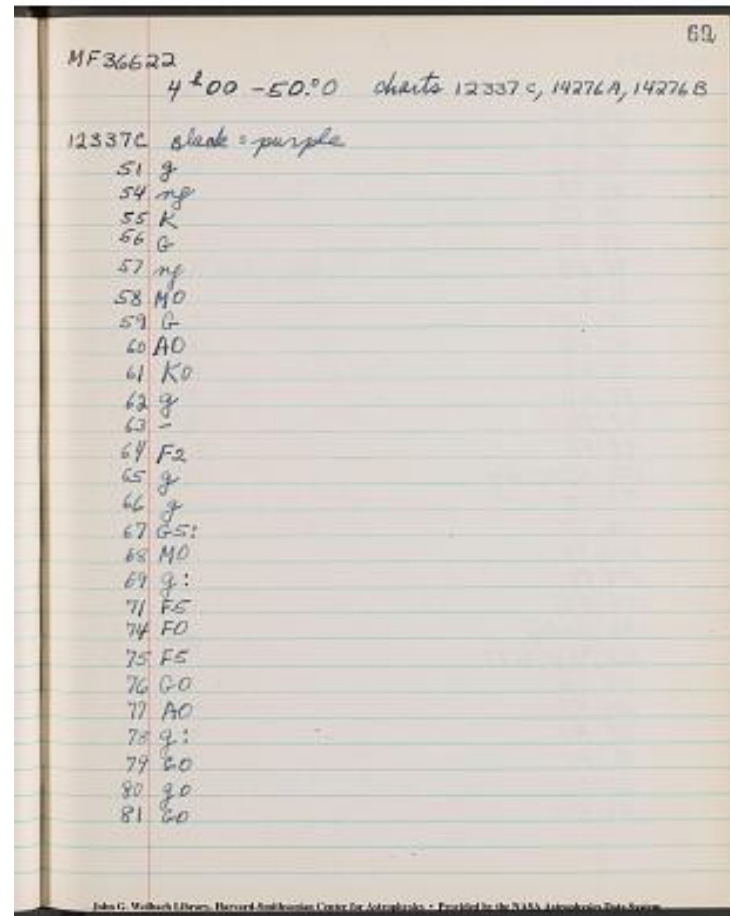 69
MF36622
4h00 -50.°0 charts 12337C, 14276A, 14276B
12337C = purple
51 g
54 ng
55 K
56 G
57 ng
58 M0
59 G
60 A0
61 K0
62 g
63 -
64 F2
65 g
66 g
67 G5:
68 M0
69 g:
71 F5
74 F0
75 F5
76 G0
77 A0
78 g:
79 G0
80 g0
81 G0
John G. Wolbach Library, Harvard-Smithsonian Center for Astrophysics • Provided by the NASA Astrophysics Data System